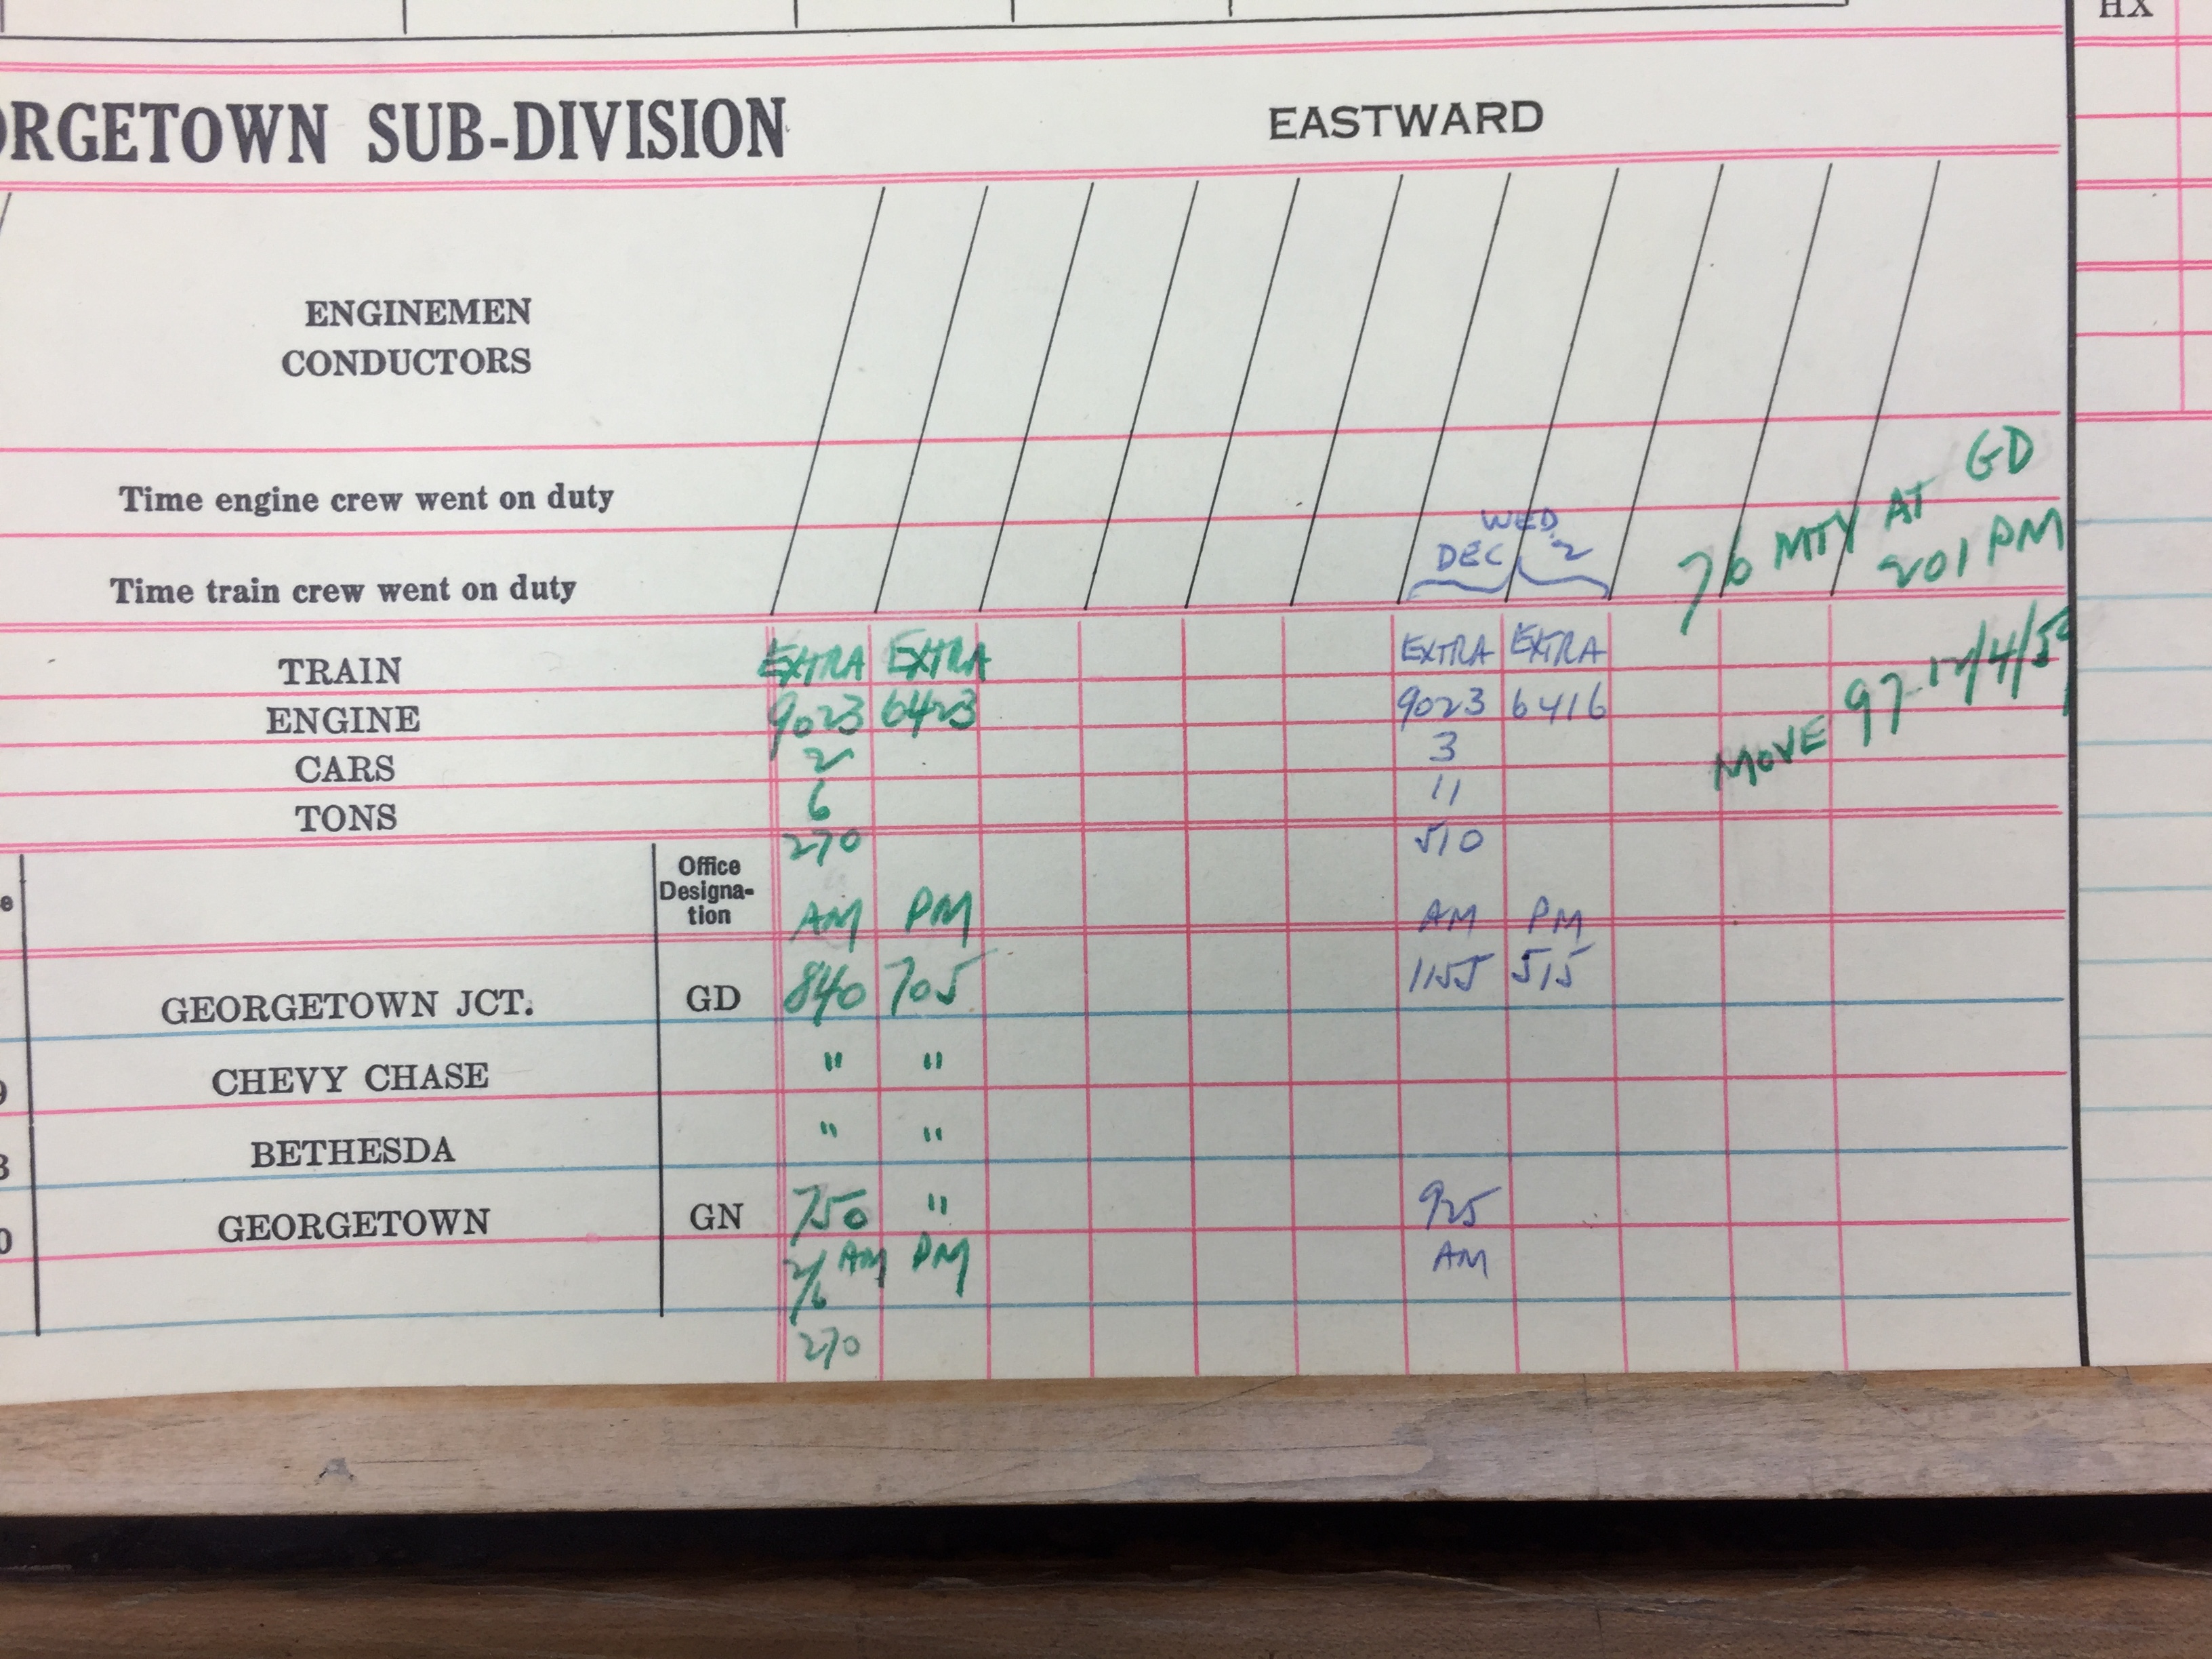 HX
ORGETOWN SUB-DIVISION EASTWARD
ENGINEMEN
CONDUCTORS
Time engine crew went on duty
Time train crew went on duty
WED.
DEC 2
76 MTY AT GD
201 PM
MOVE 97
TRAIN EXTRA EXTRA EXTRA EXTRA
ENGINE 9023 6423 9023 6416
CARS 2 3
TONS 6 11
270 510
Office
Designa-
tion
AM PM AM PM
GEORGETOWN JCT. GD 840 705 1155 515
CHEVY CHASE " "
BETHESDA " "
GEORGETOWN GN 750 " 925
AM PM AM
2/6
270